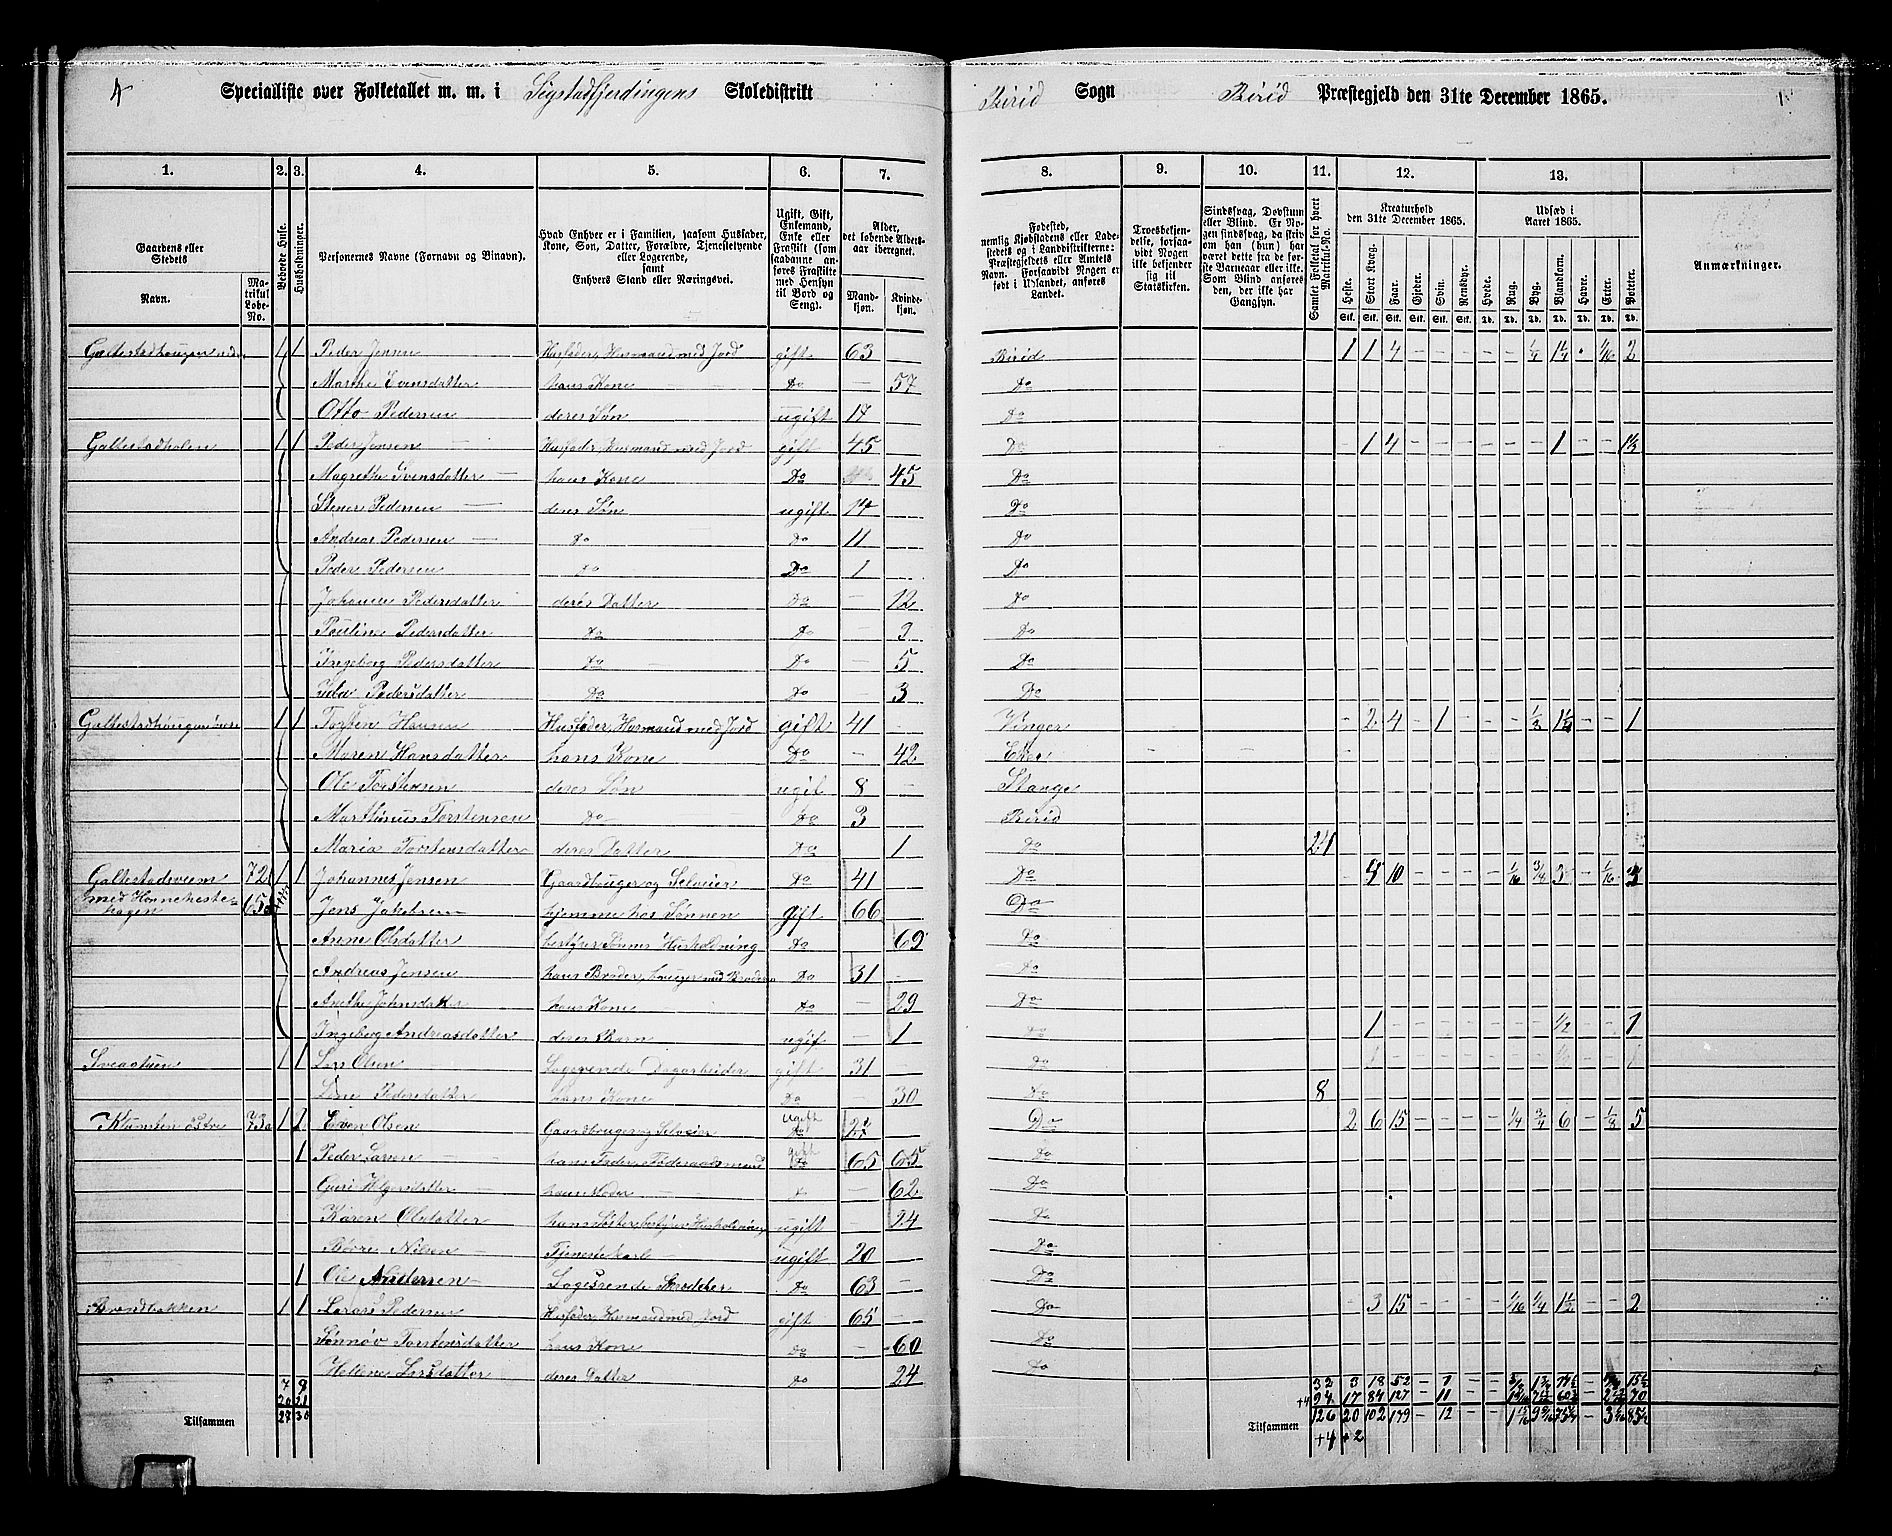 Specialliste over Folketallet m. m. i Sigstadfjerdingens Skoledistrikt
Birid Sogn Birid Præstegjeld den 31te December 1865.
1. 2. 3. 4. 5. 6. 7. 8. 9. 10. 11. 12. 13.
Gaardens eller Stedets
Navn.
Matrikul Løbe-No.
Beboede Huse.
Husholdninger.
Personernes Navne (Fornavn og Binavn).
Hvad Enhver er i Familien, saasom Husfader, Kone, Søn, Datter, Forældre, Tjenestetyende eller Logerende, samt Enhvers Stand eller Næringsvei.
Ugift, Gift, Enkemand, Enke eller Fraskilt (som saadanne anføres Fraskilte med Hensyn til Bord og Seng).
Alder, det løbende Aldersaar iberegnet.
Mandkjøn.
Kvindekjøn.
Fødested, nemlig Kjøbstadens eller Ladestedets og i Landdistrikterne: Præstegjeldets eller Amtets Navn. Forsaavidt Nogen er født i Udlandet, anføres Landet.
Troesbekjendelse, forsaavidt Nogen ikke bekjender sig til Statskirken.
Sindssvag, Døvstum eller Blind. Er Nogen sindssvag, da skrives om han (hun) har været dette fra de første Barneaar eller ikke. Som Blind anføres den, der ikke har Gangsyn.
Samlet Folketal for hvert Matrikul-No.
Kreaturhold den 31te December 1865.
Heste. Stort Kvæg. Faar. Gjeder. Svin. Rensdyr.
Udsæd i Aaret 1865.
Hvede. Rug. Byg. Blandkorn. Havre. Erter. Poteter.
Anmærkninger.
1 1 Peder Jensen Husfader, Husmand med Jord gift 63 Birid 1 1 4 - - - - - 1/4 2
Marthe Evensdatter hans Kone Do - 57 Do
Otto Pedersen deres Søn ugift 17 Do
Galtestadholen 1 1 Peder Jensen Husfader, Husmand med Jord gift 45 Do - 1 4 - - - - - - 1 - -
Magrethe Svensdatter hans Kone Do 45 Do
Stener Pedersen deres Søn ugift 14 Do
Andreas Pedersen Do Do 11 Do
Peder Pedersen Do Do 1 Do
Johanne Pedersdatter deres Datter Do - 12 Do
Pauline Pedersdatter Do Do - Do
Ingeborg Pedersdatter Do Do - 5 Do
Pedersdatter Do Do 3 Do
1 1 Torsten Hansen Husfader, Husmand med Jord gift 41 Vinger - 2 4 - 1 - - - 1
Maren Hansdatter hans Kone Do - 42
Ole Torstensen deres Søn ugift 8 Stange
Marthinus Torstensen Do Do 3 Birid
Maria Torstensdatter deres Datter Do 1 Do 24
Galtestadsveen 72 1 1 Johannes Jensen Gaardbruger og Selveier Do 41 Do 10 - - - - 1/16 3/4 3 - 1/16
med Hønnehestehagen 65 Jens Jakobsen hjemme hos Sønnen gift 66 Do
Anne Olsdatter bestyrer Sønnens Husholdning Do Do
Andreas Jensen hans Broder, med Broderen Do 31 Do
Anethe Johnsdatter hans Kone Do - 29 Do
Ingeborg Andreasdatter deres Barn ugift 1 Do 1 1/2 1
1 1 Lars Olsen Logerende Dagarbeider gift 31 Do
Lene Pedersdatter hans Kone Do - 30 Do 8
Klomsten østre 73 1 Even Olsen Gaardbruger og Selveier ugift Do 2 6 15 - - - - 1/4 3/4 6 - 1/8 5
1 Peder hans Fader, Føderaadsmand gift 65 65 Do
hans Moder - 62 Do
Karen Olsdatter hans Søster bestyrer Husholdning ugift - 24 Do
Børre Nilsen Tjenestekarl ugift 20 Do
1 Ole Andersen Logerende Skrædder Do 63 Do
Brændbakken 1 1 Lars Pedersen Husfader, Husmand med Jord gift 65 Do - 3 15 - - - - 1/16 1/4 1 1/2 - - 2
Sønnøv Torstensdatter hans Kone Do - 60 Do
Hellene Larsdatter deres Datter Do 24 Do
7 9 32 3 18 52 - 1
20 21 +4 94 17 84 127 - 11 70
Tilsammen 27 30 Tilsammen 126 20 102 179 - 12
+4 +2